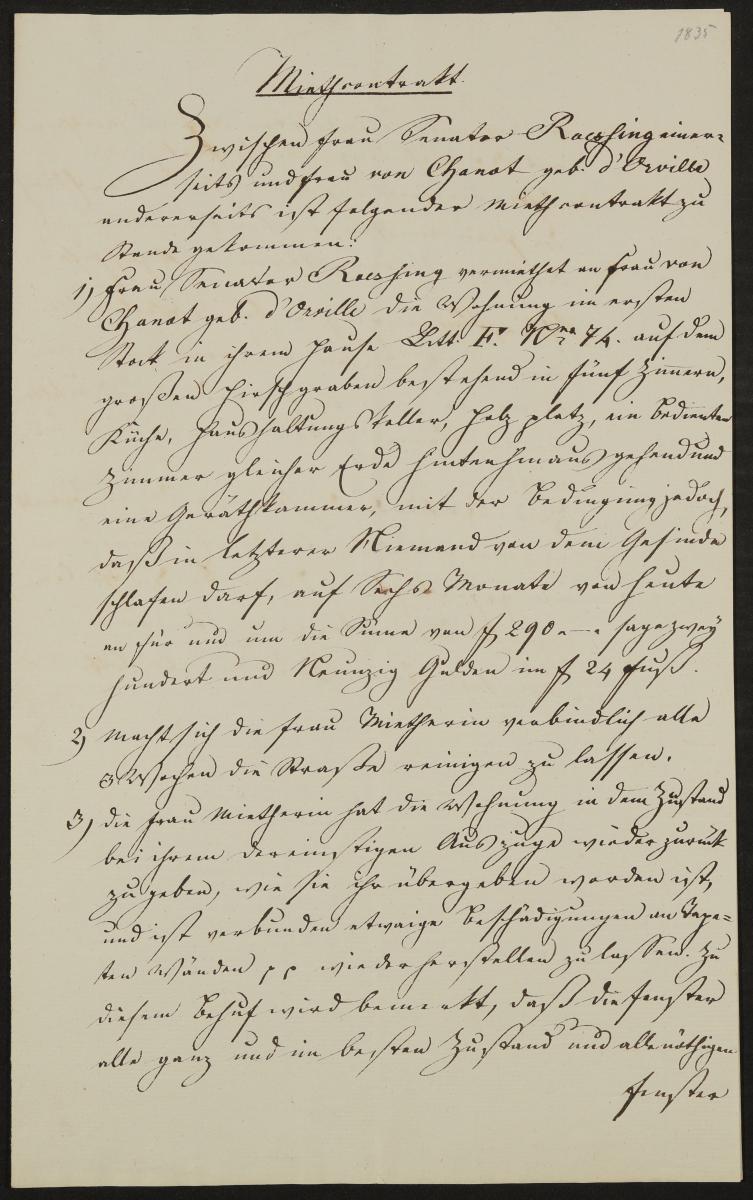 1835
Miethcontrakt.
Zwischen Frau Senator Roessing einer-
seits und Frau von Chanot geb. d'Orville
andererseits ist folgender Miethcontrakt zu
Stande gekommen:
1) Frau Senator Roessing vermiethet an Frau von
Chanot geb. d'Orville die Wohnung im ersten
Stock in ihrem Hause Litt. F. No 74. auf dem
großen Hirschgraben bestehend in fünf Zimmern,
Küche, Haushaltungskeller, Holzplatz, ein Bedienten
Zimmer gleicher Erde hintenhinaus gehend und
eine Geräthkammer, mit der Bedingung jedoch,
daß in letzterer Niemand von dem Gesinde
schlafen darf, auf Sechs Monate von heute
an für und um die Summe von f 290.—. sage zwey
hundert und Neunzig Gulden im f 24 Fuß.
2) Macht sich die Frau Mietherin verbindlich alle
3 Wochen die Straße reinigen zu lassen.
3) die Frau Mietherin hat die Wohnung in dem Zustand
bei ihrem dereinstigen Auszuge wieder zurück
zu geben, wie sie ihr übergeben worden ist,
und ist verbunden etwaige Beschädigungen an Tape-
ten Wänden pp wieder herstellen zu lassen. Zu
diesem Behuf wird bemerkt, daß die Fenster
alle ganz und im besten Zustand und alle nöthigen
Fenster